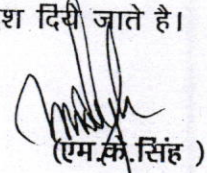 श दिये जाते है।
(एम.के.सिंह )